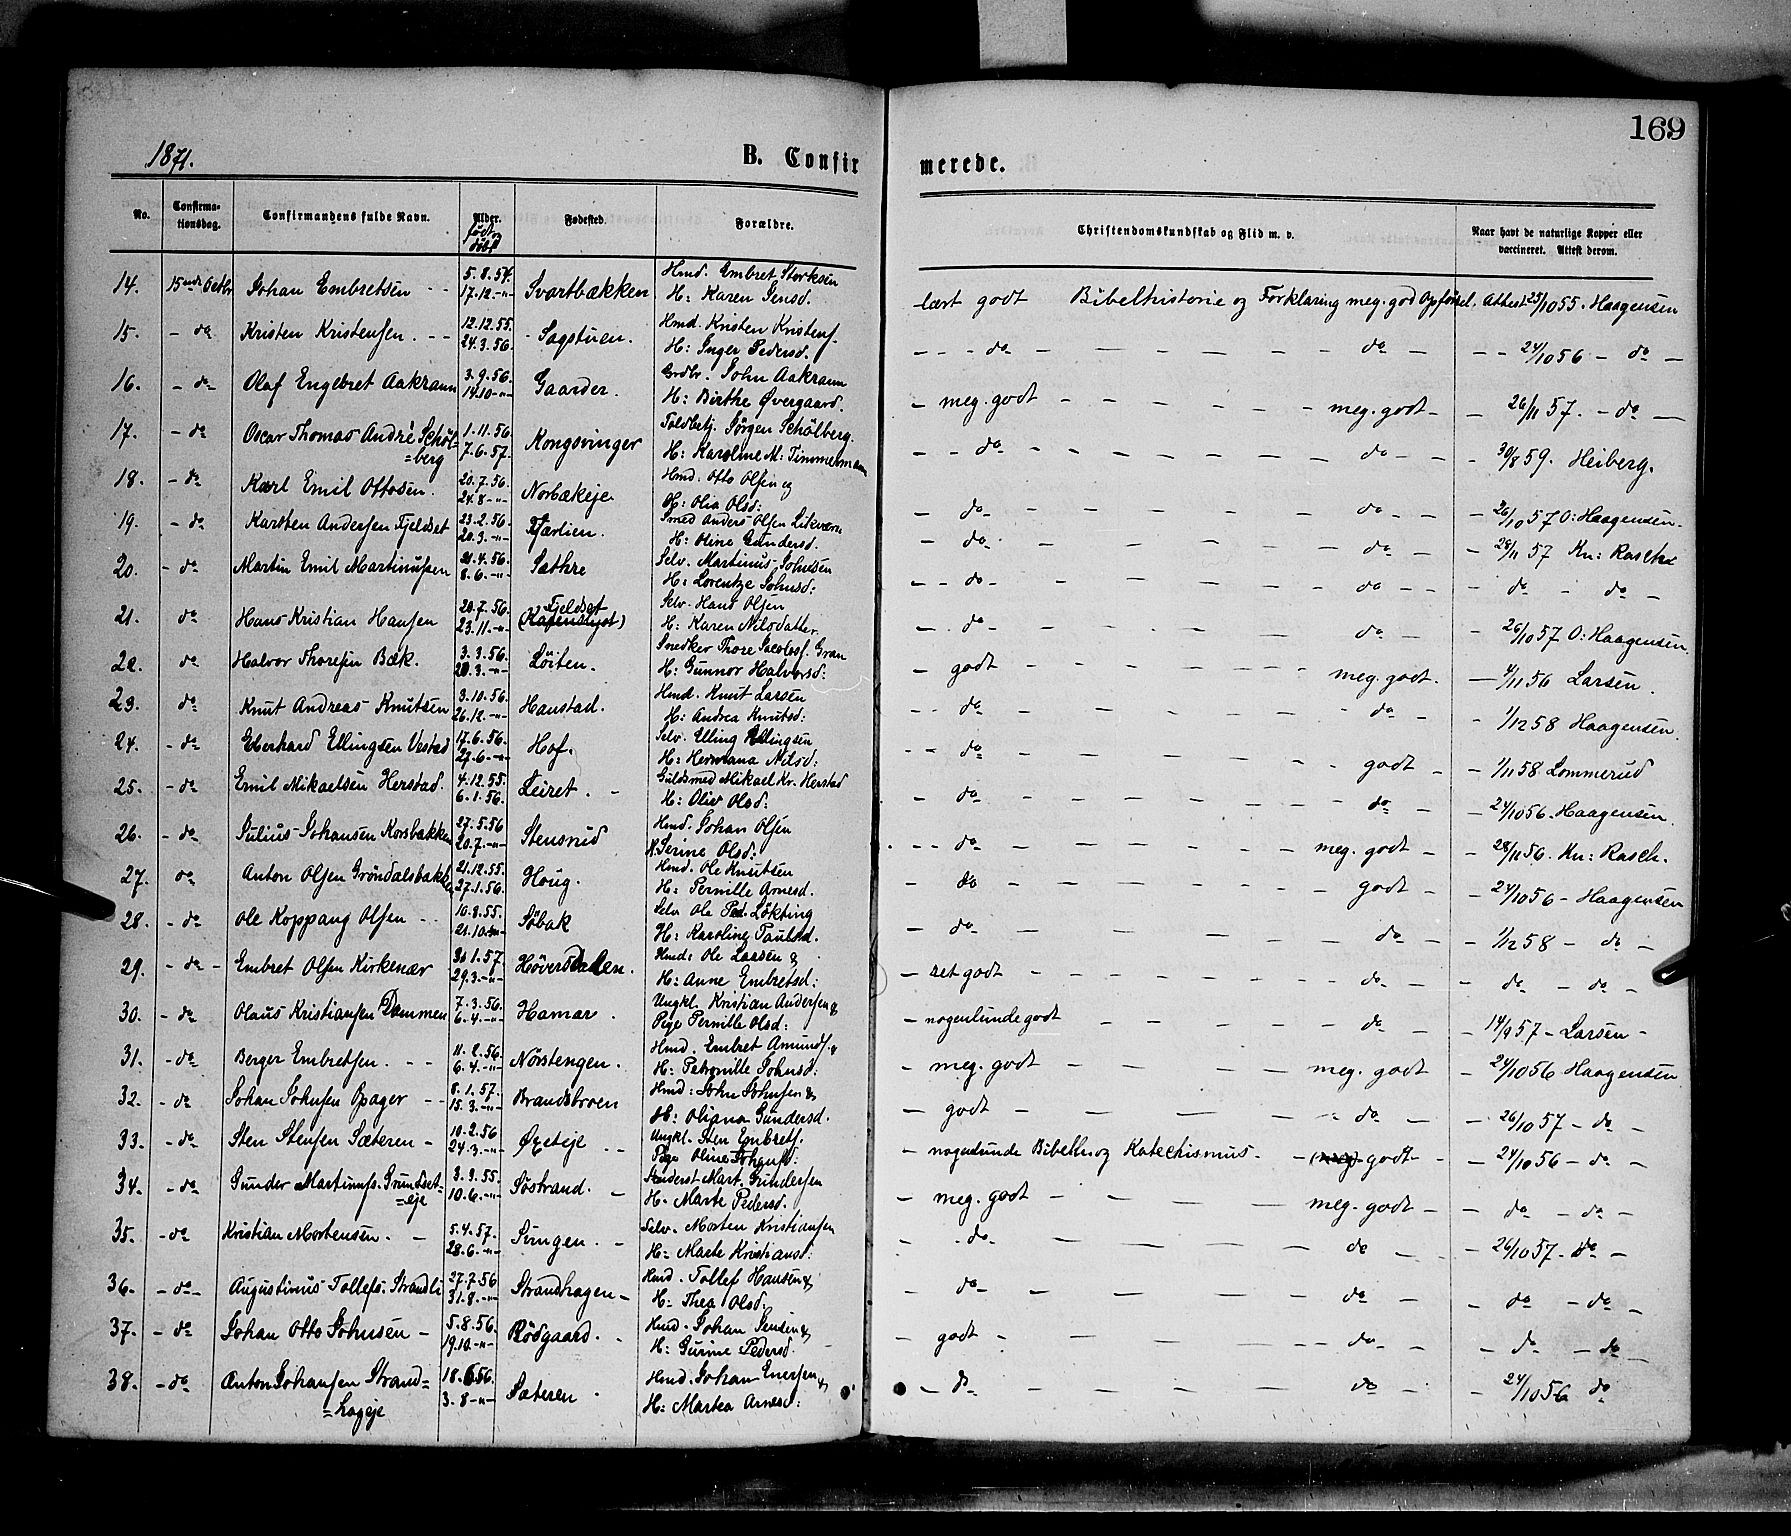 169
1871.
B. Confirmerede.
No. Confirmationsdag. Confirmandens fulde Navn. Alder. født og döbt Fødested. Forældre. Christendomskundskab og Flid m. v. Naar havt de naturlige Kopper eller vaccineret. Attest derom.
14. 15nde Octbr Johan Embretsen - - 5.8.54. 17.12.-"- Svartbækken Hmd. Embret Størksen H: Karen Jensd. lært godt Bibelhistorie og Forklaring meg. god Opförsel. Attest 25/10 55. Haagensen
15. - do Kristen Kristensen. - - 12.12.55. 24.3.56. - Sagstuen. Hmd. Kristen Kristens. H: Inger Pedersd. - - - do - - - - - do - - - 24/10 56 - do -
16. - do Olaf Engebret Aakrann 3.9.56. 14.10-"- Gaarder. Grdbr. John Aakrann H: Birthe Øvergaard. - meg. godt - - - - - - meg. godt - - 26/11 57. - do -
17. - do Oscar Thomas André Schöl=berg 1.11.56. 7.6.57. Kongsvinger Toldbetj. Jørgen Schölberg. H: Karoline M: Timmermann - - do - - - - - - do - - - 30/8 59. Heiberg.
18. - do Karl Emil Ottosen. 20.7.56. 24.8-"- Norbækeje Hmd. Otto Olsen og H: Olia Olsd: - do - - - - - do - - 26/10 57 O: Haagensen.
19. - do Karsten Andersen Fjeldset 23.2.56. 20.3.-"- Fjærlien. Smed Anders Olsen Litkværn H: Oline Gundersd. - do - - - - - do - - 28/11 57 Kn: Rasch
20. - do Martin Emil Martinussen 21.4.56. 8.6.-"- Sæthre Selv. Martinus Johnsen H: Lorentze Johnsd: - - do - - - - - do - - do - do -
21. do Hans Kristian Hansen 20.7.56. 23.11-"- Fjeldset Selv. Hans Olsen H: Karen Nilsdatter. - do - - - - - do - - 26/10 57 O: Haagensen.
22. do Halvor Thoresen Bæk. 3.3.56. 20.3.-"- Löiten. Snedker Thore Jacobss. Gran H: Gunnor Halvorsd: - godt - - - - - meg. godt. - 4/11 56 Larsen.
23. do Knut Andreas Knutsen 3.10.56. 26.12.-"- Hanstad. Hmd. Knut Larsen H: Andrea Knutsd: - do - - - - - do - - 1/12 58 Haagensen.
24. - do Eberhard Ellingsen Vestad 17.6.56. 27.6-"- Hof. Selv. Elling Ellingsen H: Hermana Nilsd: - - do - - - - - godt - - 1/11 58 Lommerud
25. - do Emil Mikaelsen Herstad. 4.12.55. 6.1.56. Leiret. - Guldsmed Mikael Kr. Herstad H: Oliv Olsd: - do - - - - - do - - 24/10 56. Haagensen
26. - do Julius Johansen Korsbakken 27.5.56 20.7.-"- Stensrud Hmd. Johan Olsen H. Serine Olsd: - - do - - - - meg. godt - - 28/11 56. Kn: Rasch.
27. do Anton Olsen Gröndalsbakken 21.12.55. 27.1.56. Houg. Hmd. Ole Knutsen H: Pernille Arnesd. - do - - - - - godt - - 24/10 56 - Haagensen
28. - do Ole Koppang Olsen - - 10.8.55. 21.10-"- Söbak Selv Ole Ped. Lökting H: Karoline Paulsd. - do - - - - - do - - 1/12 58 - do -
29. - do - Embret Olsen Kirkenær 30.1.57. 29.3.-"- Höversdalen. Hmd: Ole Larsen & H: Anne Embretsd: - ret godt - - - - - do - - do - do -
30. - do Olaus Kristiansen Dammen 7.3.56. 6.4.-"- Hamar. Ungkl. Kristian Andersen & Pige Pernille Olsd: - nogenlunde godt - - - - do - - 14/9 57 - Larsen -
31. - do Berger Embretsen. - - 11.2.56. 6.4.-"- Nörstengen. Hmd. Embret Amunds. & H: Petronille Johnsd: - meg. godt - - - - meg. godt - 24/10 56 Haagensen
32. - do Johan Johnsen Opager - - 8.1.57. 15.3.-"- Brandsbroen Hmd: John Johnsen & H: Oliana Gundersd. - godt - - - - - do - - 26/10 57 - do -
33. - do Sten Stensen Sæteren - 10.2.56 24.3.-"- Øxeteje - - Ungkl. Sten Embrets. Pige Oline Johansd: - nogenlunde Bibelh. og Katechismus. - (meg) godt - - 24/10 56 - do -
34. - do Gunder Martinus. Grundset=eje 3.3.55. 10.6.-"- Söstrand. - Inderst Mart. Gundersen H. Marte Pedersd. - meg. godt - - - - meg. godt - - do - do -
35. - do Kristian Mortensen. - 5.4.57. 28.6.-"- Svingen. - Selv. Morten Kristiansen H: Marte Kristiansd: - do - - - - - do - - 26/10 57 - do -
36. - do - Augustinus Tollefs. Strandli 27.7.56 31.8.-"- Strandhagen - Hmd. Tollef Hansen & H: Thea Olsd: - do - - - - - do - - do - do -
37. - do Johan Otto Johnsen - 5.8.56. 19.10.-"- Rödgaard. - Hmd. Johan Jensen & H: Gurine Pedersd. - godt - - - - - do - - do - do -
38. - do Anton Johansen Strand=hageje 18.6.56. 3.8-"- Sæteren. Hmd. Johan Enersen & H: Martea Arnesd: - do - - - - - do - - 24/10 56 do